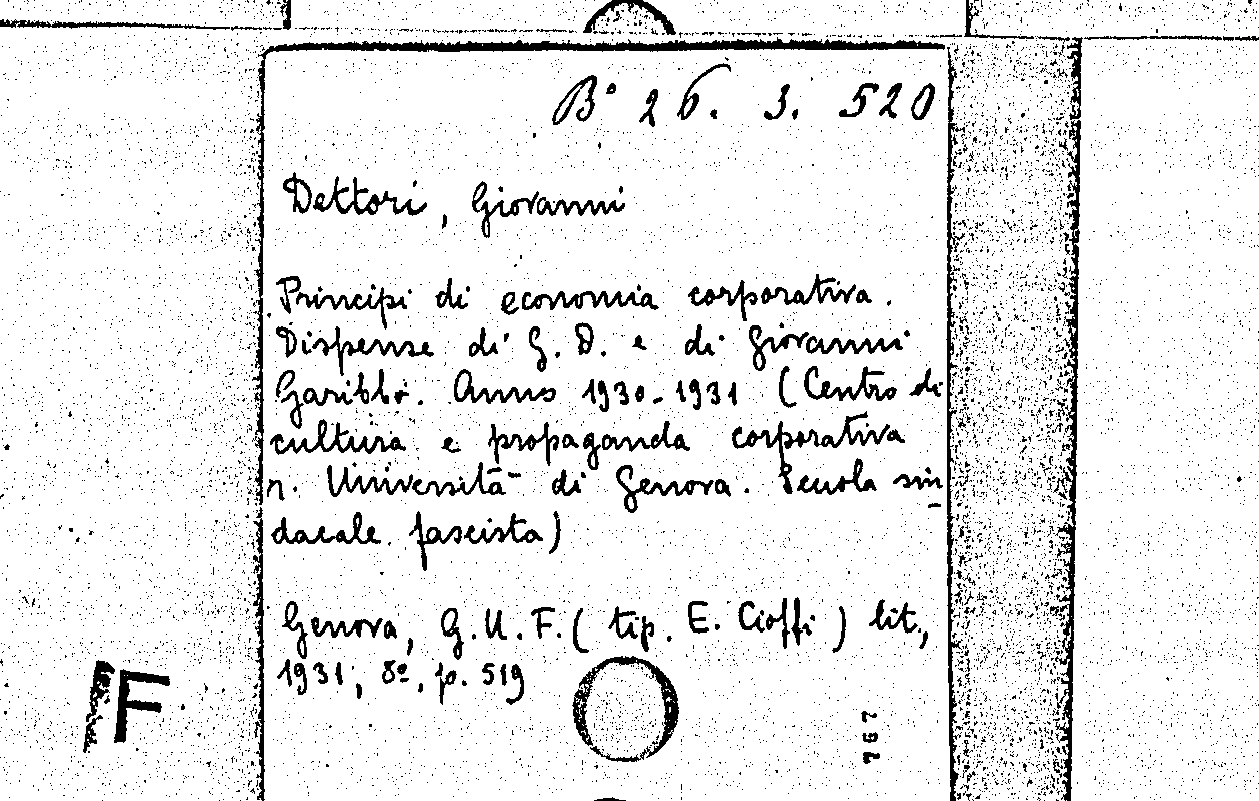 B° 26. 3. 520
Dettori, Giovanni
Principi di economia corporativa.
Dispense di G. D. e di Giovanni
Garibbo. Anno 1930-1931 (Centro di
cultura e propaganda corporativa
n. Università di Genova. Scuola sin
dacale fascista)
Genova, G.U.F. (tip. E. Cioffi) lit.,
1931, 8º, p. 519
767
F